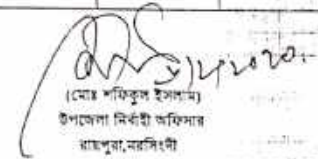 (মোঃ শফিকুল ইসলাম)
উপজেলা নির্বাহী অফিসার
রায়পুরা,নরসিংদী